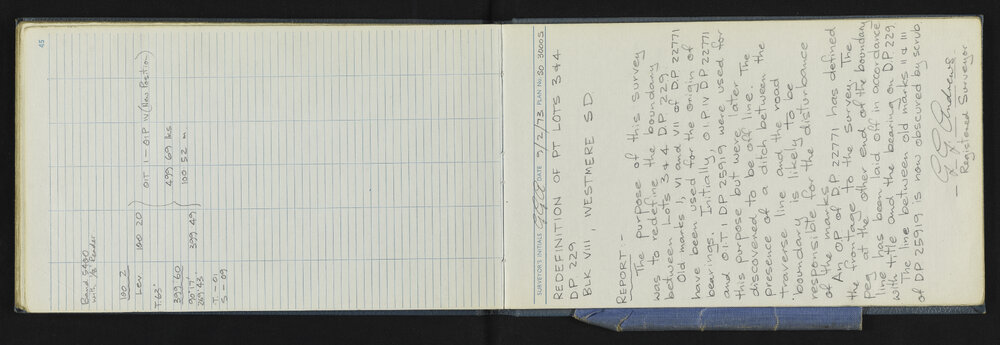 45
Band 5480
100 2
Lev 100 20
OIT I - OIP IV (New Position)
T.63°
399 60
499 69 lks
90°17'
100 52 m
269°43'
399 49
T. - 01
S - 09
SURVEYOR'S INITIALS DATE 9/2/73 PLAN No. SO 30005
REDEFINITION OF PT LOTS 3 & 4
DP 229
BLK VIII, WESTMERE S D.
REPORT:-
The purpose of this survey
was to redefine the boundary
between Lots 3 & 4 DP 229
Old marks I, VI and VII of DP 22771
have been used for the origin of
bearings. Initially, OIP IV DP 22771
and OIT I DP 25919 were used for
this purpose but were later
discovered to be off line. The
presence of a ditch between the
traverse line and the road
boundary is likely to be
responsible for the disturbance
of the marks.
An OP of DP 22771 has defined
the frontage to the survey. The
peg at the other end of the boundary
line has been laid off in accordance
with title and the bearing on DP 229
The line between old marks II & III
of DP 25919 is now obscured by scrub
- G G Andrews
Registered Surveyor